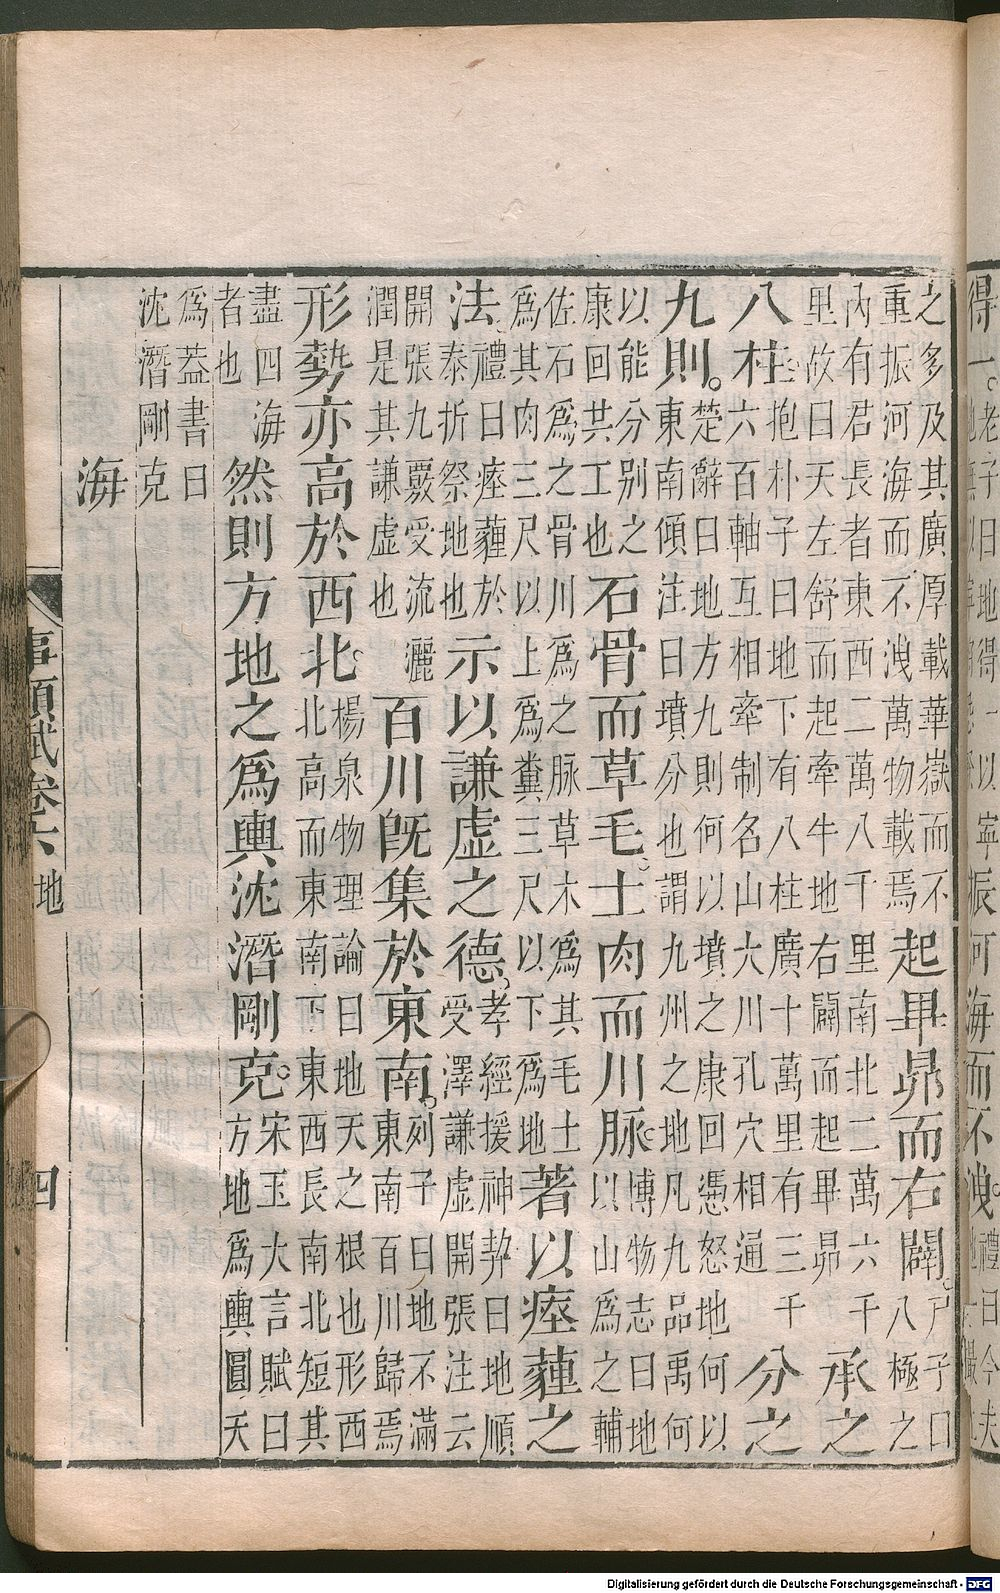 得一。老子曰地得一以寧振河海而不洩。禮曰今夫
之多及其廣厚載華嶽而不
重振河海而不洩萬物載焉
起畢昴而右闢。
尸子曰
八極之
內有君長者東西二萬八千里南北二萬六千
里故曰天左舒而起牽牛地右闢而起畢昴
承之
八柱
抱朴子曰地下有八柱廣十萬里有三千
六百軸互相牽制名山大川孔穴相通
分之
九則。
楚辭曰地方九則何以墳之康回憑怒地何以
東南傾注曰墳分也謂九州之地凡九品禹何
以能分别之
康回共工也
石骨而草毛。土肉而川脉。
博物志曰地
以山爲之輔
佐石爲之骨川爲之脉草木爲其毛土
爲其肉三尺以上爲糞三尺以下爲地
著以瘞薶之
法。
禮曰瘞薶於
泰折祭地也
示以謙虚之德。
孝經援神契曰地順
受澤謙虚開張注云
開張九覈受流灑
潤是其謙虚也
百川旣集於東南。
列子曰地不滿
東南百川歸焉
形勢亦高於西北。
楊泉物理論曰地天之根也形西
北高而東南下東西長南北短其
盡四海
者也
然則方地之爲輿沈潛剛克。
宋玉大言賦曰
方地爲輿圓天
爲葢書曰
沈潛剛克
海
事類賦卷六 地
四
Digitalisierung gefördert durch die Deutsche Forschungsgemeinschaft - DFG